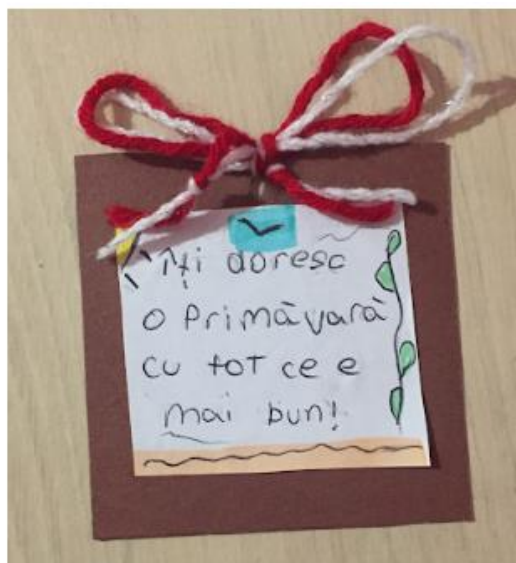 Îți doresc
o Primăvară
cu tot ce e
mai bun!